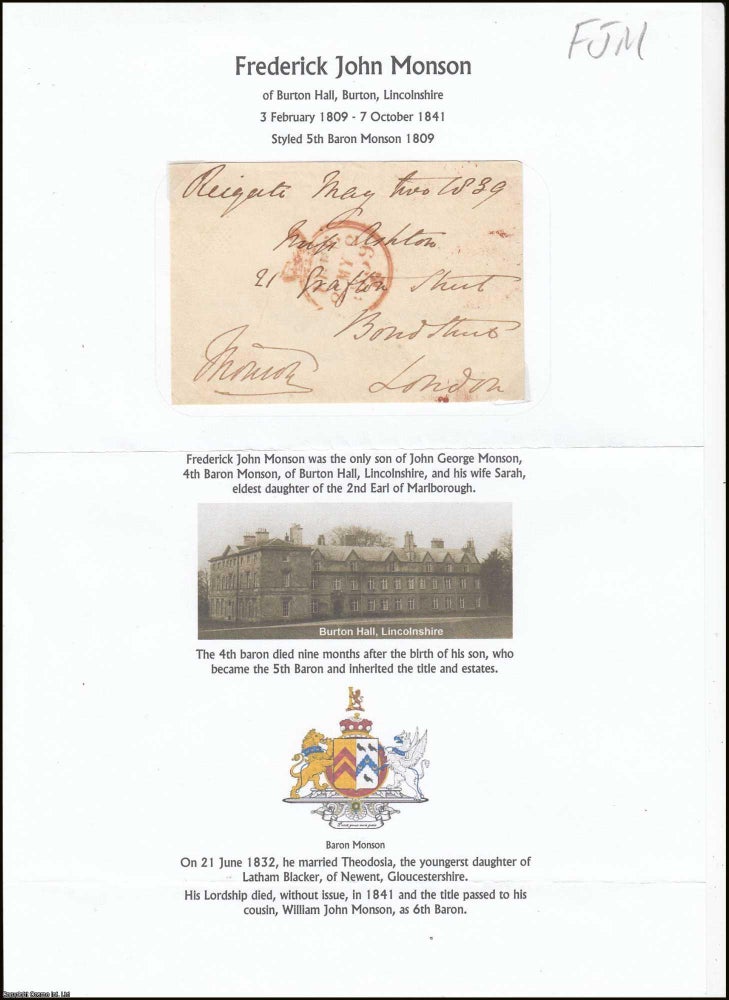 FJM
Frederick John Monson
of Burton Hall, Burton, Lincolnshire
3 February 1809 - 7 October 1841
Styled 5th Baron Monson 1809
Reigate May two 1839
Miss Ashton
21 Grafton Street
Bond Street
Monson
London
Frederick John Monson was the only son of John George Monson,
4th Baron Monson, of Burton Hall, Lincolnshire, and his wife Sarah,
eldest daughter of the 2nd Earl of Marlborough.
Burton Hall, Lincolnshire
The 4th baron died nine months after the birth of his son, who
became the 5th Baron and inherited the title and estates.
Baron Monson
On 21 June 1832, he married Theodosia, the youngerst daughter of
Latham Blacker, of Newent, Gloucestershire.
His Lordship died, without issue, in 1841 and the title passed to his
cousin, William John Monson, as 6th Baron.
Copyright Cosmo Ltd. Ltd